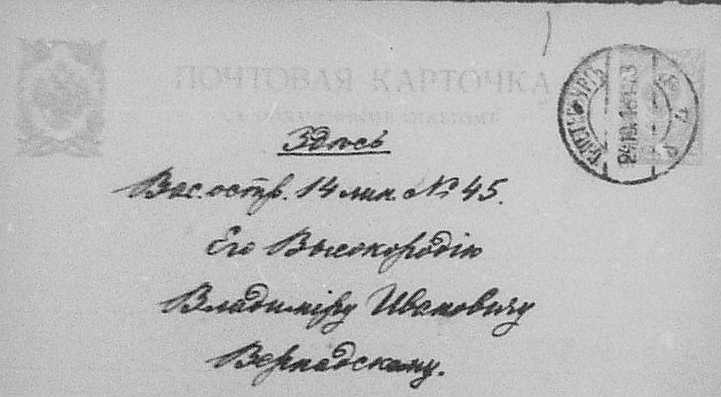 ПОЧТОВАЯ КАРТОЧКА
Здѣсь
Вас. остр. 14 лин. № 45.
Его Высокородію
Владиміру Ивановичу
Вернадскому.